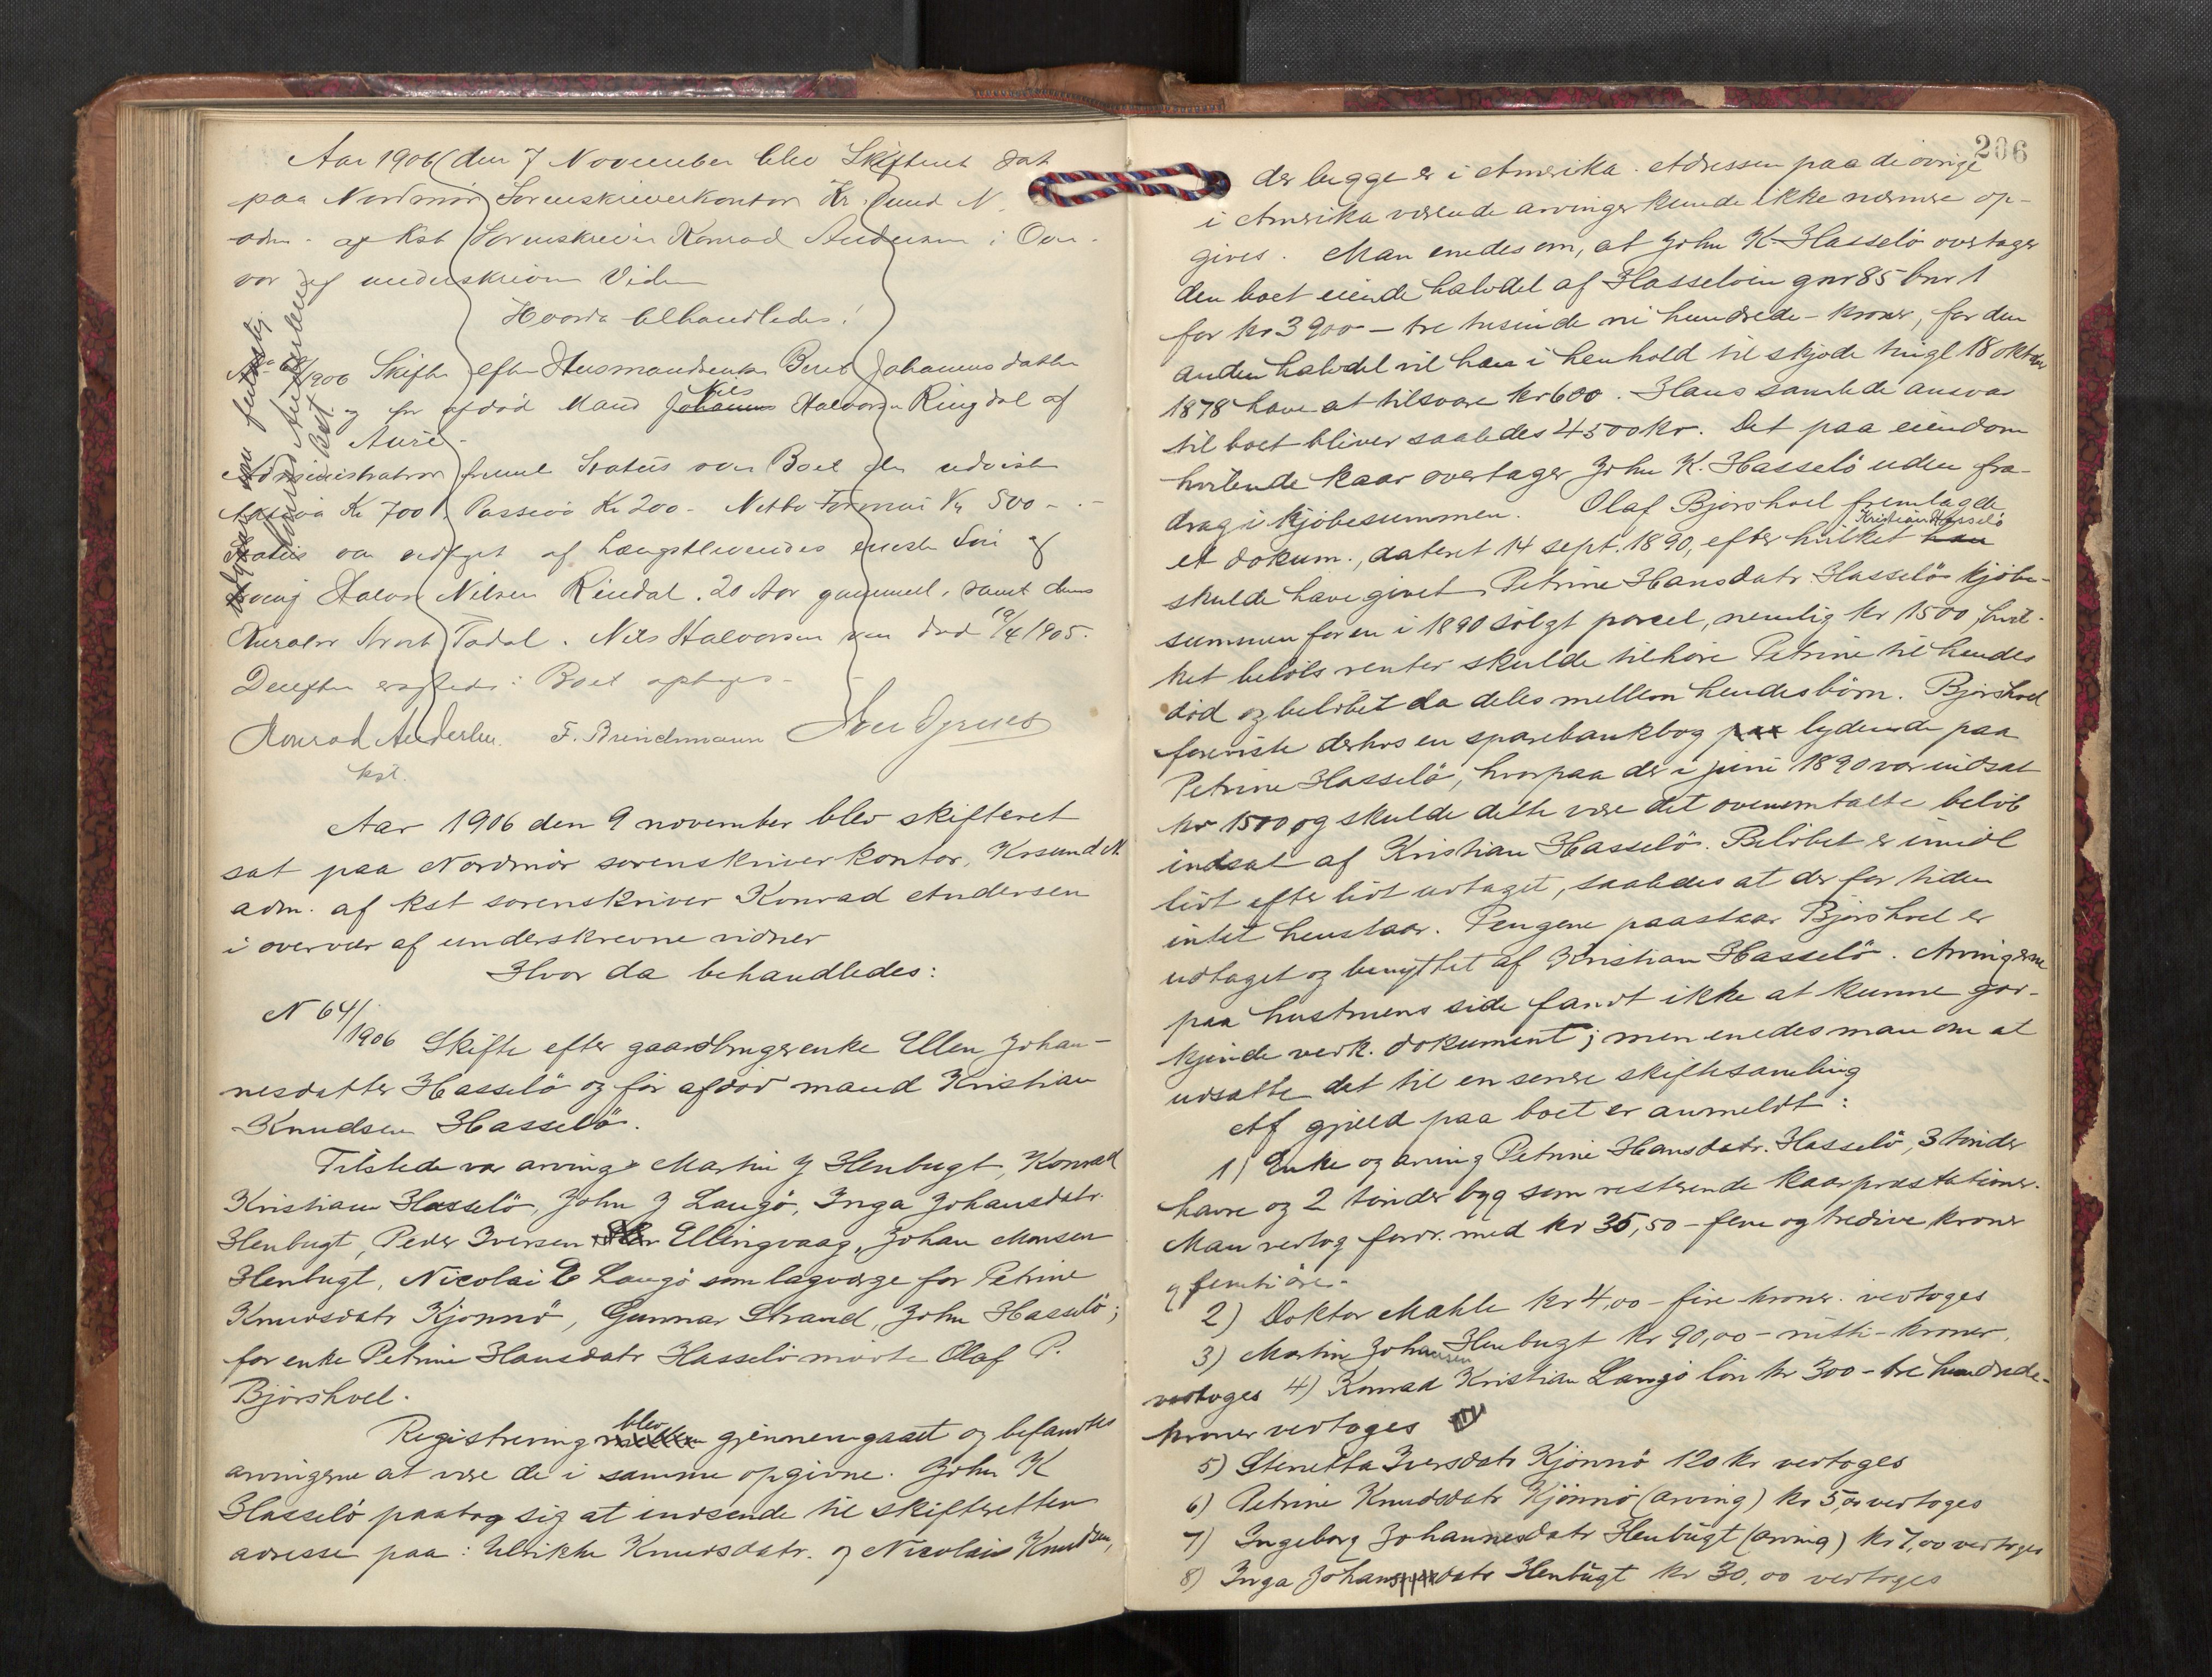 Aar 1906 den 7 November blev Skifteret sat
paa Nordmør Sorenskriverkontor Kr.sund N.
adm. af Kst Sorenskriver Konrad Andersen i Over-
vær af underskrevne Vidner
Hvorda behandledes:
/1906 Skifte efter Husmandsenke Berit Johannesdatter
og før afdød Mand Johannes Nils Halvorsen Ringdal af
Aure.
Administrator freml Status over Boet der udviste
Aktiva Kr 700. Passiva Kr 200 - Netto Formue Kr 500 -
Status var vedtaget af Længstlevendes eneste Søn og
Arving Halvor Nilsen Rindal. 20 Aar gammel, samt dennes
Kurator Todal. Nils Halvorsen var død 10/4 1905.
Derefter : Boet optages -
Konrad Andersen. F. Brinchmann
kst.
Aar 1906 den 9 november blev skifteret
sat paa Nordmør sorenskriverkontor, Krsund N.
adm. af kst sorenskriver Konrad Andersen
i overvær af underskrevne vidner
Hvor da behandledes:
N 64/1906 Skifte efter gaardbrugerenke Ellen Johan-
nesdatter Hasselö og før afdød mand Kristian
Knudsen Hasselö.
Tilstede var arving Martin J Henbugt, Konrad
Kristian Hasselö, John J Langö, Inga Johansdatr
Henbugt, Peder Iversen Ellingvaag, Johan Monsen
Henbugt, Nicolai E Langö som lagværge for Petrine
Knudsdatr Kjönnö, Gunnar Strand, John Hasselö;
for enke Petrine Hansdatr Hasselö mødte Olaf P.
Bjørshoel.
Registrering blev gjennemgaaet og befandtes
arvingerne at være de i samme opgivne. John K
Hasselö paatog sig at indsende til skifteretten
adresse paa: Ulrikke Knudsdatr. og Nicolais Knudsen,
206
der begge er i Amerika. Adressen paa de øvrige
i Amerika værende arvinger kunde ikke nærmere op-
gives. Man enedes om, at John K Hasselö overtager
den boet eiende halvdel af Hasselöen gnr 85 bnr 1
for kr 3900 - tre tusinde ni hundrede - kroner, for den
anden halvdel vil han i henhold til skjøde tingl 18 oktober
1878 have at tilsvare kr 600. Hans samlede ansvar
til boet bliver saaledes 4500 kr. Det paa eiendom
hvilende kaar overtager John K. Hasselö uden fra-
drag i kjøbesummen. Olaf Bjørshoel fremlagde
et dokum., dateret 14 sept. 1890, efter hvilket han Kristian Hasselö
skulde have givet Petrine Hansdatr Hasselö kjøbe-
summen for en i 1890 solgt parcel, nemlig kr 1500, hvil-
ket beløbs renter skulde tilhøre Petrine til hendes
død og beløbet da deles mellem hendes børn. Bjørshoel
foreviste derhos en sparebankbog lydende paa
Petrine Hasselö, hvorpaa der i juni 1890 var indsat
kr 1500 og skulde dette være det ovenomtalte beløb
indsat af Kristian Hasselö. Beløbet er imidl
lidt efter lidt udtaget, saaledes at der for tiden
intet henstaar. Pengene paastaar Bjørshoel er
udtaget og benyttet af Kristian Hasselö. Arvingerne
paa hustruens side fandt ikke at kunne god-
kjende vedk. dokument; men enedes man om at
udsætte det til en senere skiftesamling
Af gjæld paa boet er anmeldt:
1) Enke og arving Petrine Hansdatr. Hasselö, 3 tønder
havre og 2 tønder byg som resterende kaarpræstationer.
Man vedtog fordr. med kr 35,50 - fem og tredive kroner
og femti øre.
2) Doktor Mahle kr 4,00 - fire kroner. vedtoges
3) Martin Johansen Henbugt kr 90,00 - nitti - kroner,
vedtoges 4) Konrad Kristian Langö løn kr 300 - tre hundrede -
kroner vedtoges
5) Stinetta Iversdatr Kjönnö 120 kr vedtoges
6) Petrine Knudsdatr Kjönnö (arving) kr 5,00 vedtoges
7) Ingeborg Johannesdatr Henbugt (arving) kr 7,00 vedtoges
8) Inga Johansdatr Henbugt kr 30,00 vedtoges